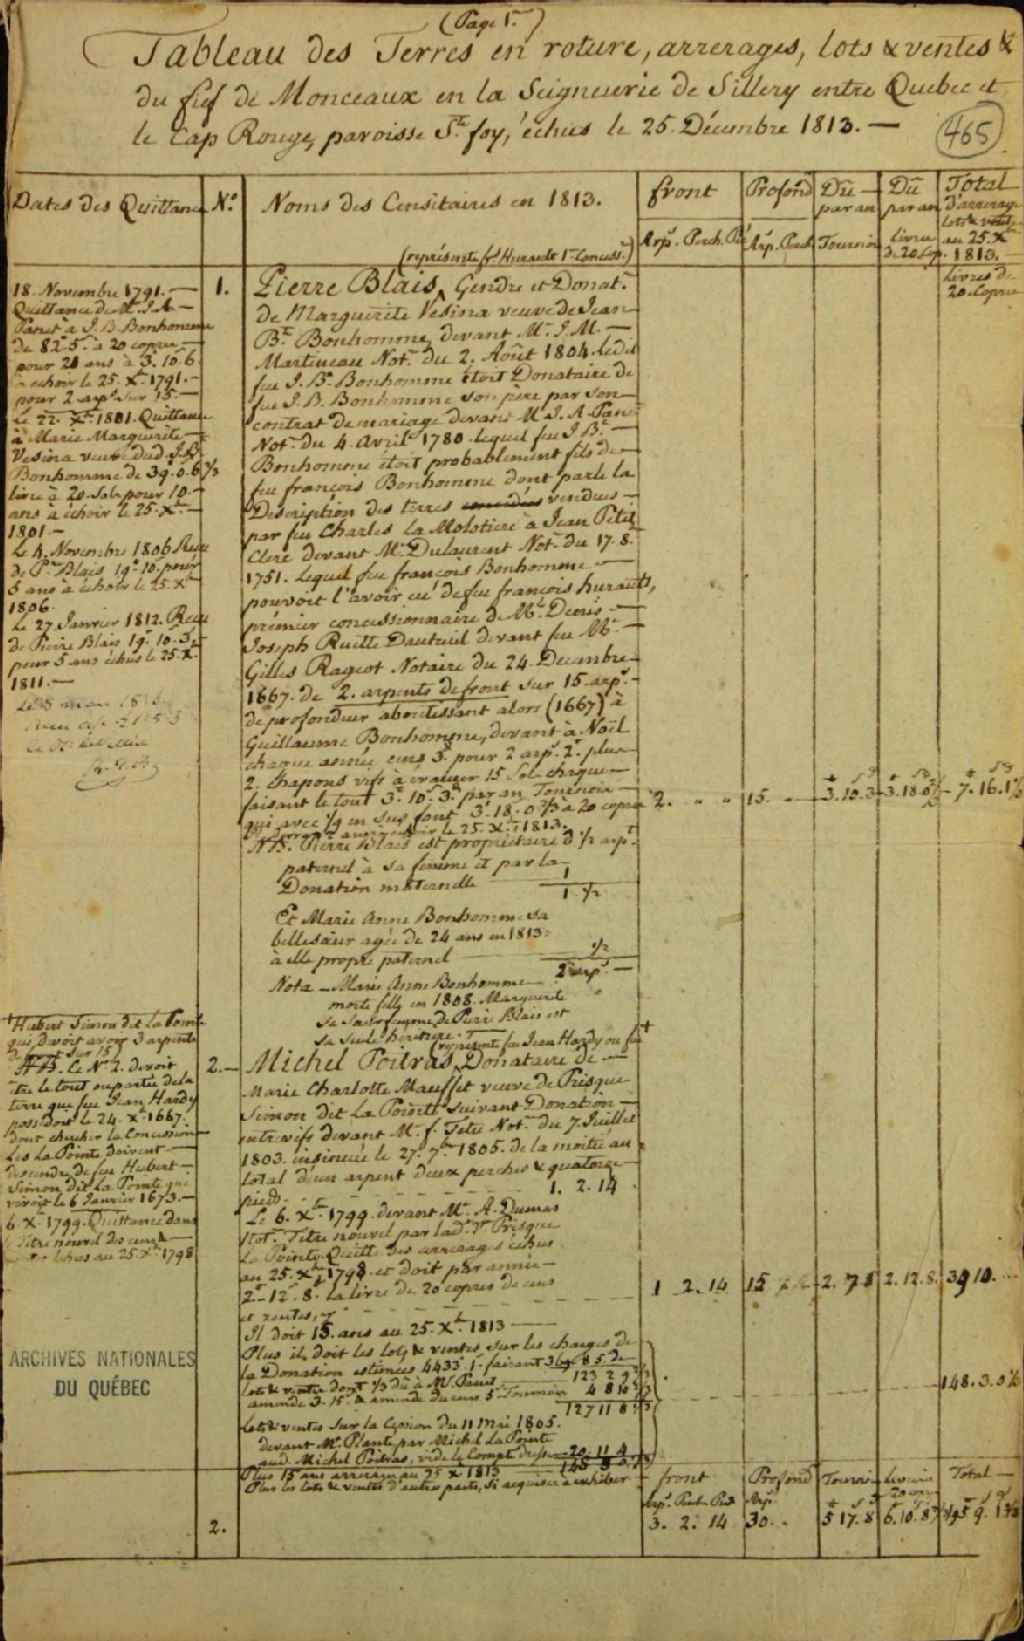 (Page 1re)
Tableau des Terres en roture, arrerages, lots & ventes &
du fief de Monceaux en la Seigneurie de Sillery entre Quebec et
le Cap Rouge, paroisse Ste foy, échus le 25 Décembre 1813. —
465
Dates des Quittances No. Noms des Censitaires en 1813. front Profond Dû par an Dû par an Total d'arrerages lots & ventes au 25. Xbre 1813. —
Arps. Perch. Pié Arp. Perch Tournois Livres de 20 Cop. Livres de 20. Copres
(représente fs Hurault 1er Concess.)
18. Novembre 1791. —
Quittance de Mr. J. A.
Panet à J. B. Bonhomme
de 82 5. à 20 copres
pour 21 ans à 3. 10. 6
à echoir le 25. Xbre 1791. —
pour 2 arps sur 15. —
Le 22. Xbre 1801. Quittance
à Marie Marguerite —
Vesina veuve dud. J. B.
Bonhomme de 39. 0. 6 2/3
livre à 20. Sols pour 10. —
ans à échoir le 25. Xbre —
1801. —
Le 4. Novembre 1806 Reçu
de Pre Blais 19. 10. pour
5 ans à échoir le 25. Xbre
1806.
Le 27 Janvier 1812. Reçu
de Pierre Blais 19. 10. 3.
pour 5 ans échus le 25. X.
1811. —
1. Pierre Blais, Gendre et Donat.
de Marguerite Vesina veuve de Jean
Bte Bonhomme, devant Mr. J. M. —
Martineau Notre du 2. Août 1804. Ledit
feu J. Bte Bonhomme étoit Donataire de
feu J. B. Bonhomme son père par son
contrat de mariage devant Mr J. A. Panet
Notre du 4. Avril 1780. lequel feu J. Bte —
Bonhomme étoit probablement fils de
feu françois Bonhomme dont parle la
Description des terres concédées vendues —
par feu Charles La Molotiere à Jean Petit
Clerc devant Mr. Dulaurent Notre du 17. 8.
1751. Lequel feu françois Bonhomme —
pouvoit l'avoir eu de feu françois hurault,
premier concessionnaire de Mr. Denis —
Joseph Ruette Dauteuil devant feu Mr. —
Gilles Rageot Notaire du 24. Decembre
1667. de 2. arpents de front sur 15. arps. —
de profondeur aboutissant alors (1667) à
Guillaume Bonhomme, devant à Noël
chaque année cens 3s pour 2 arps. plus
2. chapons vifs à evaluer 15 Sols chaque —
faisant le tout 3. 10. 3. par an Tournois —
qui avec 1/9 en sus font 3. 18. 0 2/3 à 20 copres 2. " " 15. — 3. 10. 3 3. 18. 0 2/3 7. 16. 1 1/3
à échoir le 25. X. 1813.
NB. Pierre Blais est propriétaire d'1/2 arpt.
paternel à sa femme et par la
Donation maternelle 1
1. 1/2
Et Marie Anne Bonhomme sa
bellesœur agée de 24 ans en 1813:
à elle propre paternel 1/2
2 arps. —
Nota — Marie Anne Bonhomme
morte fille en 1808. Marguerite
Sa Sœur femme de Pierre Blais est
Sa seule héritière.
Hubert Simon dit La Pointe
qui devoit avoir 3 arpents
de front sur 15
NB. Le No 2. devoit
être le tout ou partie de la
terre que feu Jean Hardy
possedoit le 24. X. 1667.
dont chercher la Concession
Les La Pointe doivent —
descendre de feu Hubert —
Simon dit La Pointe qui
vivoit le 6 Janvier 1673. —
6. X. 1799. Quittance dans
le Titre nouvel des cens &
échus au 25 Xbre 1798
(représente feu Jean Hardy ou feu +
2. — Michel Poitras, Donataire de —
Marie Charlotte Mauffet veuve de Prisque
Simon dit La Pointe suivant Donation —
entrevifs devant Mr. f. Tetu Notre du 7. Juillet
1803. insinuée le 27. 7bre 1805. de la moitié au
total d'un arpent deux perches & quatorze
pieds. 1. 2. 14
Le 6. Xbre 1799. devant Mr A. Dumas
Notre. Titre nouvel par lad. Ve Prisque
La Pointe, Quitte des arrerages échus
au 25. Xbre 1798. et doit par année —
2 — 12. 8. la livre de 20 copres de cens
et rentes, 1 2. 14 15 2. 7. 8 2. 12. 8. 39 10.
Il doit 15. ans au 25. Xbre 1813
Plus il doit les lots & ventes sur les charges de
la Donation estimées 4433. 1. faisant 369. 8 5. de
lots & ventes dont 1/3 dû à Mr. Panet 123 2 9 2/3
amende 3. 15. & amende du cens 5s Tournois 4 8 10 2/3
127 11 8 1/3
Lots & ventes sur la Cession du 11 Mai 1805.
devant Mr. Planté par Michel La Pointe
aud. Michel Poitras, vide le Compte 20. 11 4 148. 3. 0 1/3
Plus 15 ans arrerages au 25 X 1813
Plus les lots & ventes d'autres parts, si acquises à exhiber
front Profond Tournois Livres 20 copres Total —
Arp. Perch. Pied Arp.
2. 3. 2. 14 30. 5 17. 8 6. 10. 8 2/3 195 9. 1 2/3
ARCHIVES NATIONALES
DU QUÉBEC